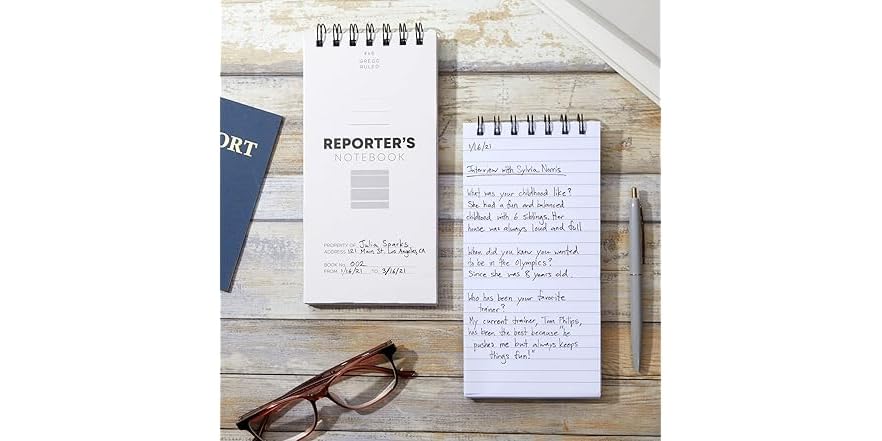 4x8
GREGG
RULED
REPORTER'S
NOTEBOOK
PROPERTY OF Julia Sparks
ADDRESS 121 Main St. Los Angeles, CA
BOOK No. 002
FROM 1/16/21 TO 3/16/21
PORT
1/16/21
Interview with Sylvia Norris
What was your childhood like?
She had a fun and balanced
childhood with 6 siblings. Her
house was always loud and full
When did you know you wanted
to be in the Olympics?
Since she was 8 years old.
Who has been your favorite
trainer?
My current trainer, Tom Philips,
has been the best because "he
pushes me but always keeps
things fun!"